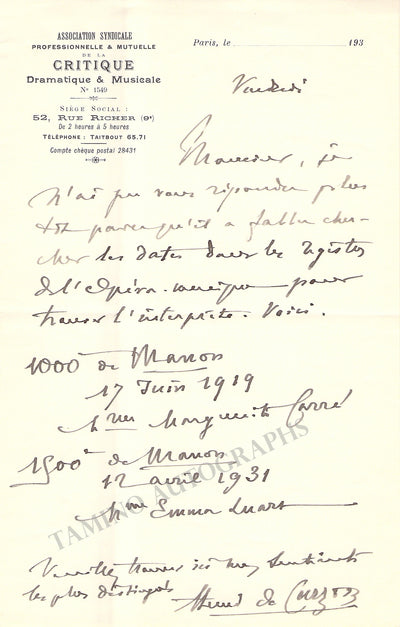 ASSOCIATION SYNDICALE
PROFESSIONNELLE & MUTUELLE
DE LA
CRITIQUE
Dramatique & Musicale
Nº 1549
SIÈGE SOCIAL :
52, RUE RICHER (9e)
De 2 heures à 5 heures
TÉLÉPHONE : TAITBOUT 65.71
Compte chèque postal 28431
Paris, le 193
Vendredi
Monsieur, je
n'ai pu vous répondre plus
tôt parce qu'il a fallu cher-
cher les dates dans les registres
de l'Opéra-comique pour
trouver l'interprète. Voici.
1000e de Manon
17 Juin 1919
Mme Marguerite Carré
1500e de Manon
12 avril 1931
Mme Emma Luart
Veuillez trouver ici mes sentiments
les plus distingués
Henri de Curzon
TAMINO AUTOGRAPHS